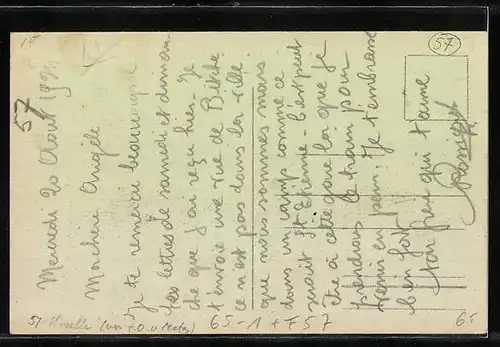 Mercredi 20 Août 1924
Ma chère Angèle
Je te remercie beaucoup de
tes lettres de samedi et diman-
che que j'ai reçu hier - Je
t'envoie une vue de Bitche
ce n'est pas dans la ville
que nous sommes mais
dans un camps comme ce
serait St Etienne - C'est peut
être à cette gare la que je
prendrais le train pour
venir en perm. Je t'embrasse
bien fort
Ton frère qui t'aime
57
57
57 - Moselle
65 - 1 + F 57
6.